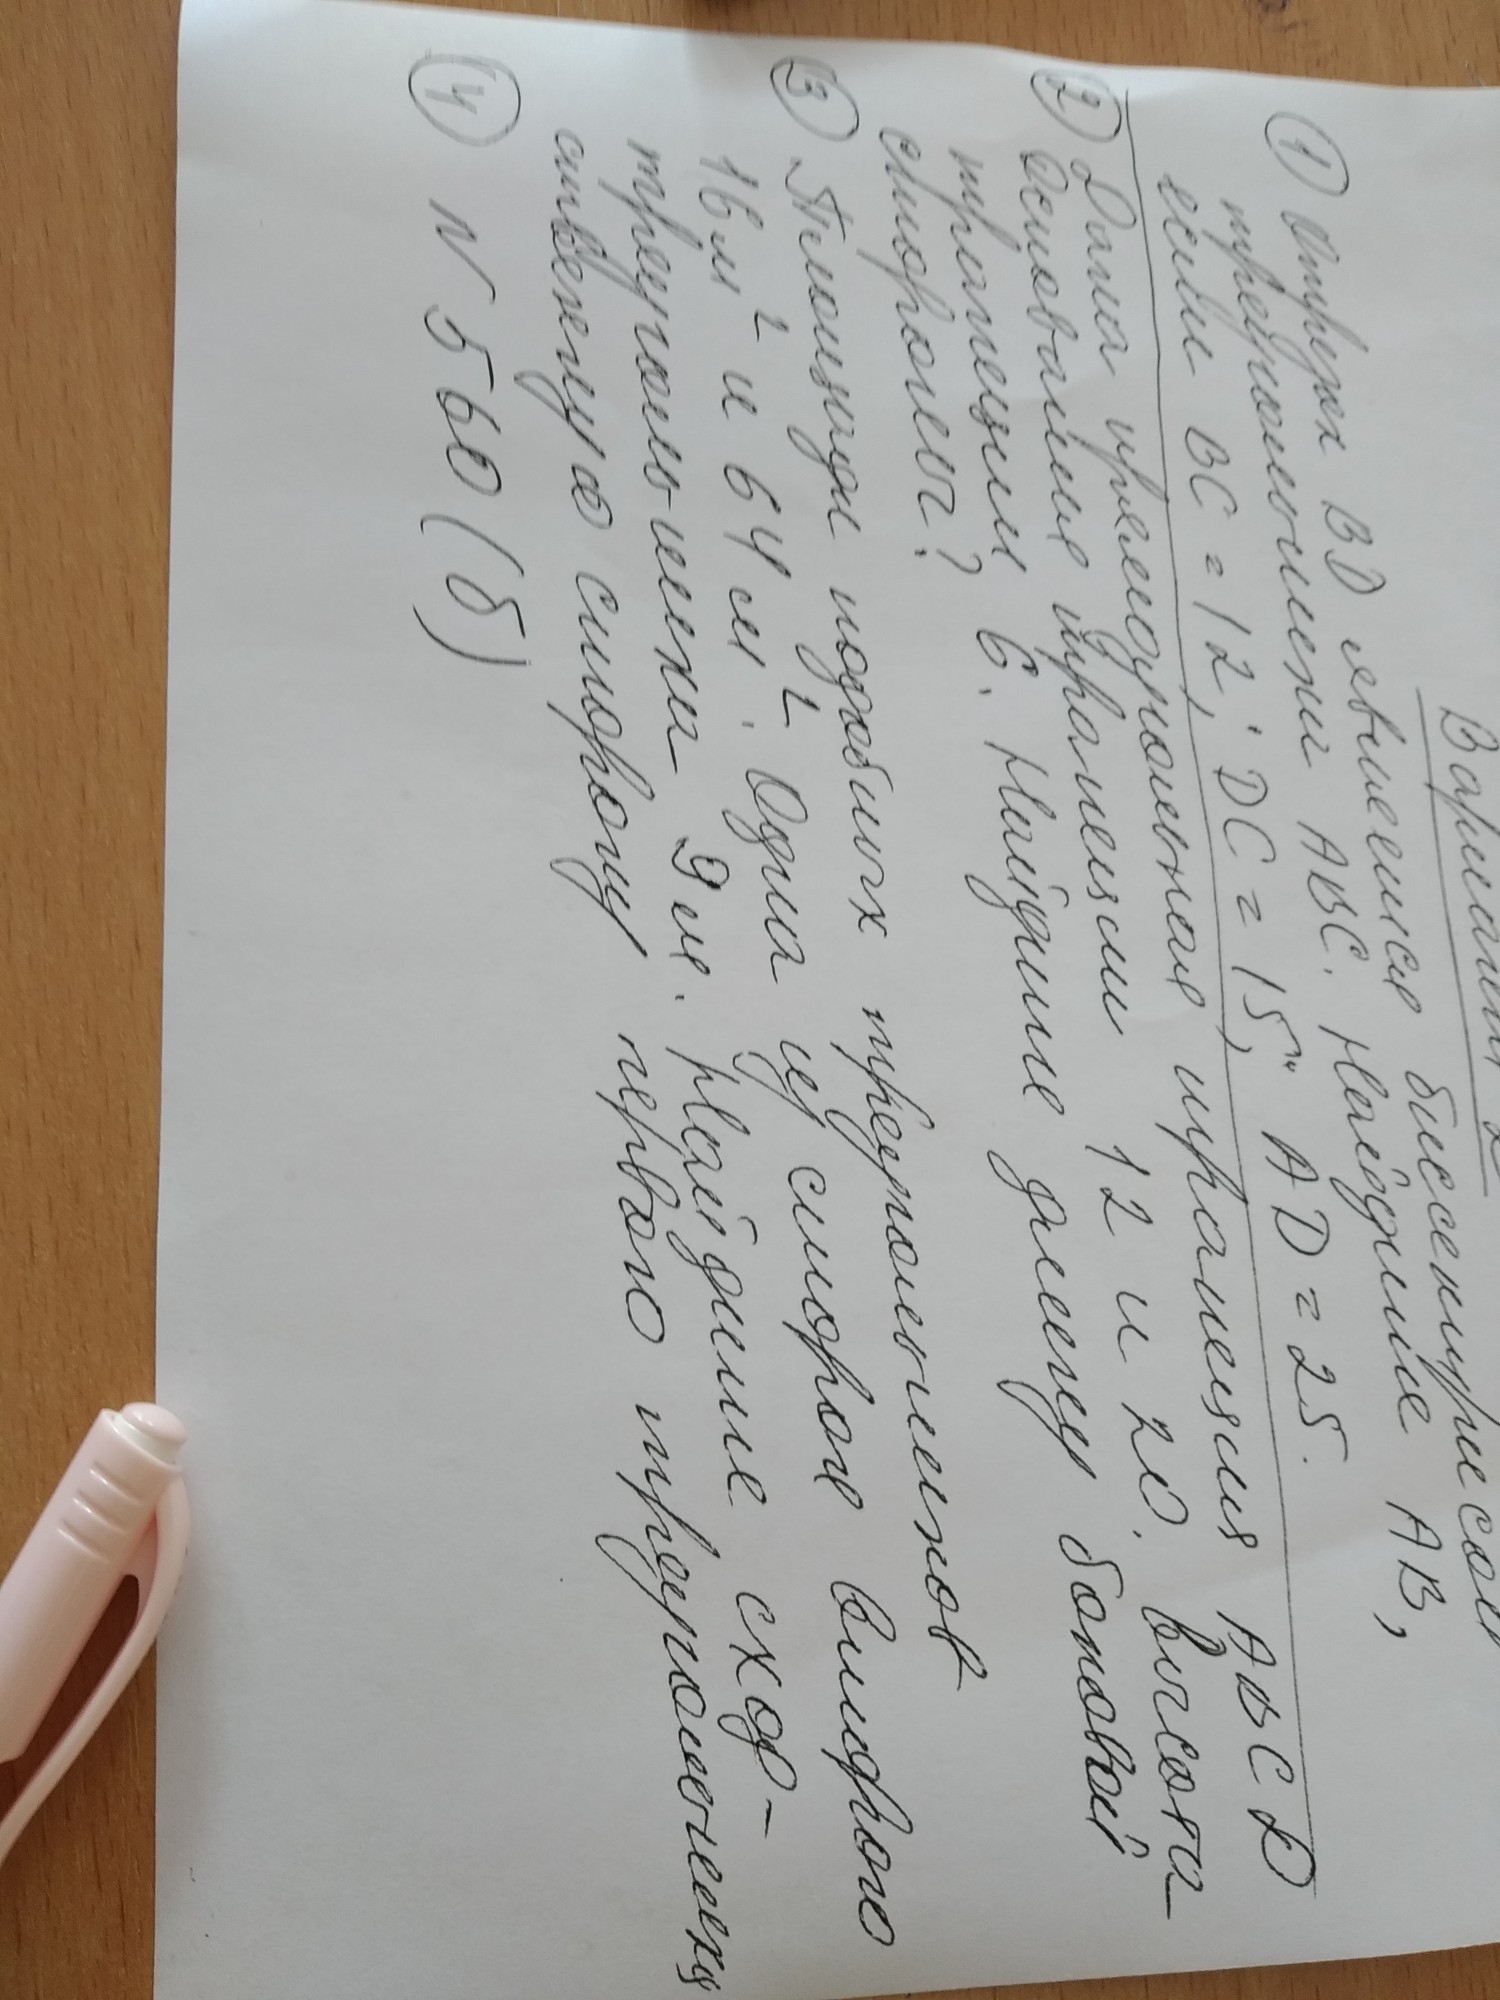 Вариант 2
① Отрезок BD является биссектрисой
треугольника ABC. Найдите AB,
если BC = 12, DC = 15, AD = 25.
② Дана прямоугольная трапеция ABCD
Основания трапеции 12 и 20. Высота
трапеции 6. Найдите длину боковой
стороны?
③ Площади подобных треугольников
16 м² и 64 м². Одна из сторон второго
треугольника 9 м. Найдите сход-
ственную сторону первого треугольника
④ N 560 (б)